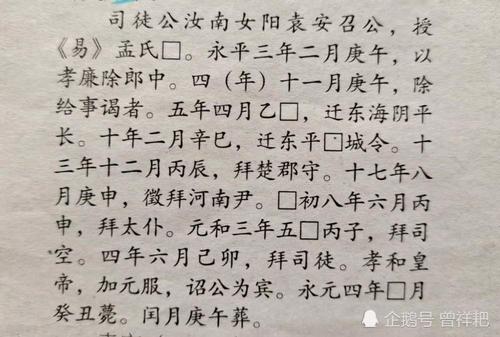 司徒公汝南女阳袁安召公，授
《易》孟氏□。永平三年二月庚午，以
孝廉除郎中。四（年）十一月庚午，除
给事谒者。五年四月乙□，迁东海阴平
长。十年二月辛巳，迁东平□城令。十
三年十二月丙辰，拜楚郡守。十七年八
月庚申，徵拜河南尹。□初八年六月丙
申，拜太仆。元和三年五□丙子，拜司
空。四年六月己卯，拜司徒。孝和皇
帝，加元服，诏公为宾。永元四年□月
癸丑薨。闰月庚午葬。
企鹅号 曾祥耙